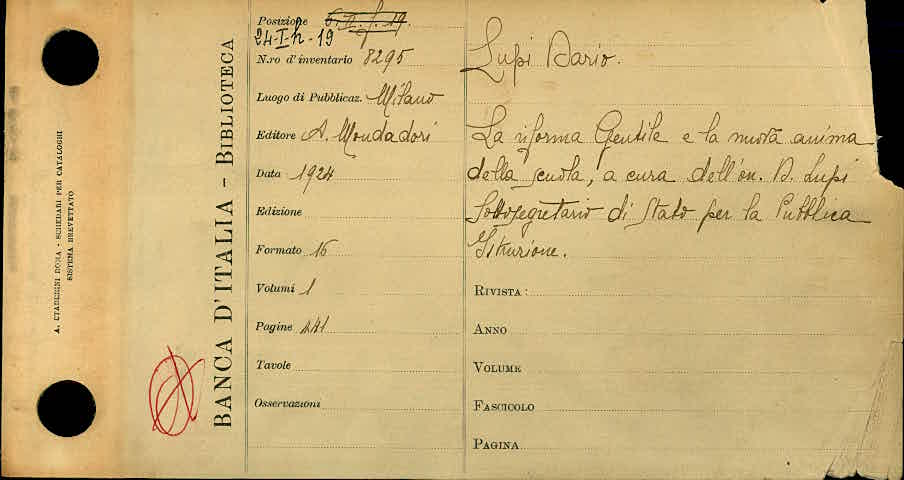 A. CTADERINI DORA - SCHEDARI PER CATALOGHI
SISTEMA BREVETTATO
BANCA D'ITALIA - BIBLIOTECA
Posizione
24-I-h-19
N.ro d'inventario 8295
Luogo di Pubblicaz. Milano
Editore A. Mondadori
Data 1924
Edizione
Formato 16
Volumi 1
Pagine
Tavole
Osservazioni
Lupi Dario.
La riforma Gentile e la nuova anima
della scuola, a cura dell'on. D. Lupi
Sottosegretario di Stato per la Pubblica
Istruzione.
RIVISTA:
ANNO
VOLUME
FASCICOLO
PAGINA